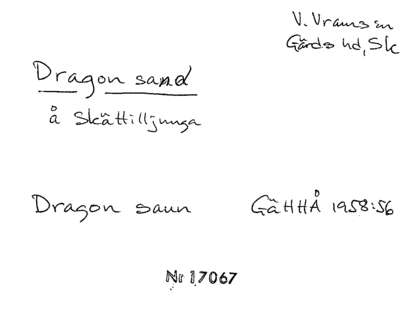 V. Vram sn
Gärds hd, Sk
Dragon sand
å Skättilljunga
Dragon saun GäHHÅ 1958:56
Nr 17067